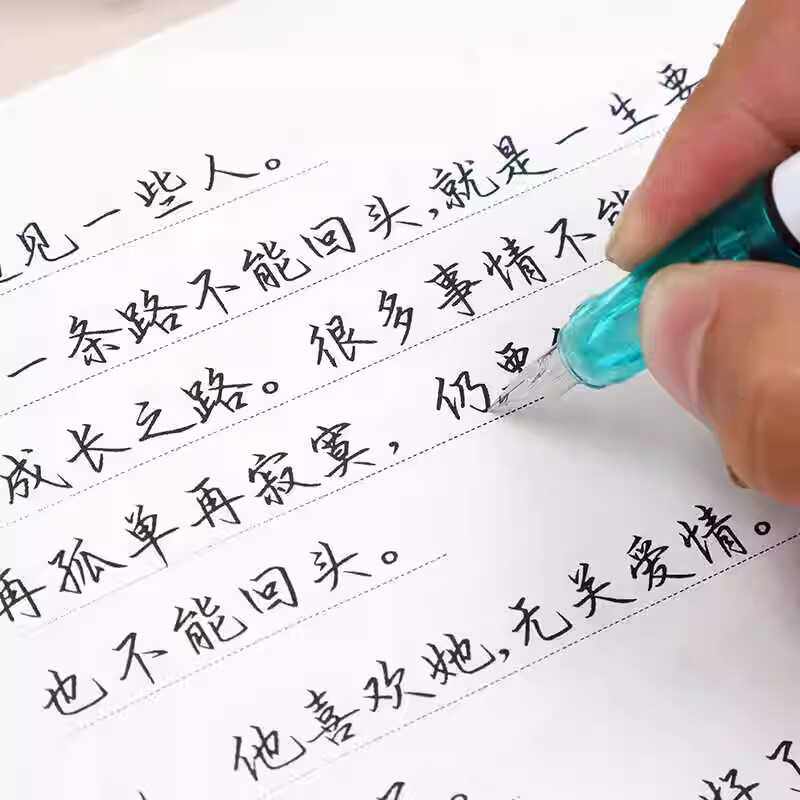 见一些人。
一条路不能回头,就是一生要
成长之路。很多事情不能
再孤单再寂寞,仍要
也不能回头。
他喜欢她,无关爱情。
好了